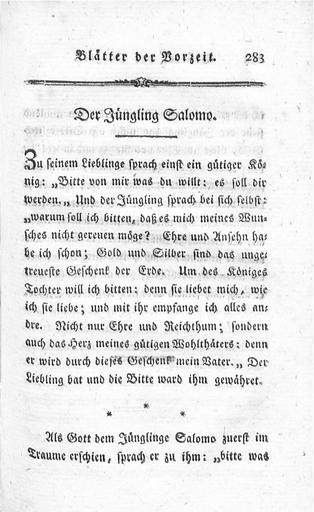 Blätter der Vorzeit. 283
Der Jüngling Salomo.
Zu seinem Lieblinge sprach einst ein gütiger Kö
nig: „Bitte von mir was du willt: es soll dir
werden.„ Und der Jüngling sprach bei sich selbst:
„warum soll ich bitten, daß es mich meines Wun-
sches nicht gereuen möge? Ehre und Ansehn ha-
be ich schon; Gold und Silber sind das unge-
treueste Geschenk der Erde. Um des Königes
Tochter will ich bitten: denn sie liebet mich, wie
ich sie liebe; und mit ihr empfange ich alles an-
dre. Nicht nur Ehre und Reichthum; sondern
auch das Herz meines gütigen Wohlthäters: denn
er wird durch dieses Geschenk mein Vater.„ Der
Liebling bat und die Bitte ward ihm gewähret.
* * *
Als Gott dem Jünglinge Salomo zuerst im
Traume erschien, sprach er zu ihm: „bitte was